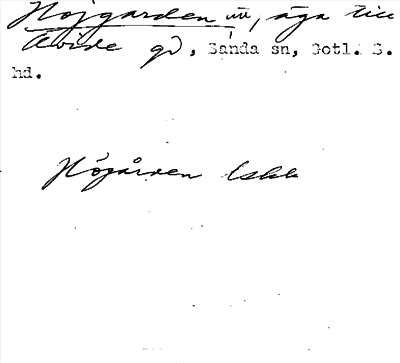 Höjgården un, äga till
Avide gd, Sanda sn, Gotl. S.
hd.
Högården Iskk